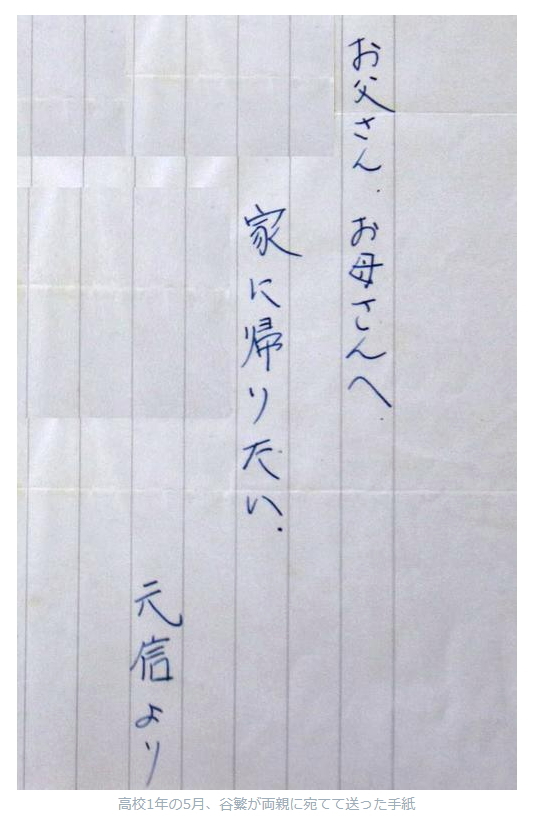 お父さん、お母さんへ
家に帰りたい.
元信より
高校1年の5月、谷繁が両親に宛てて送った手紙